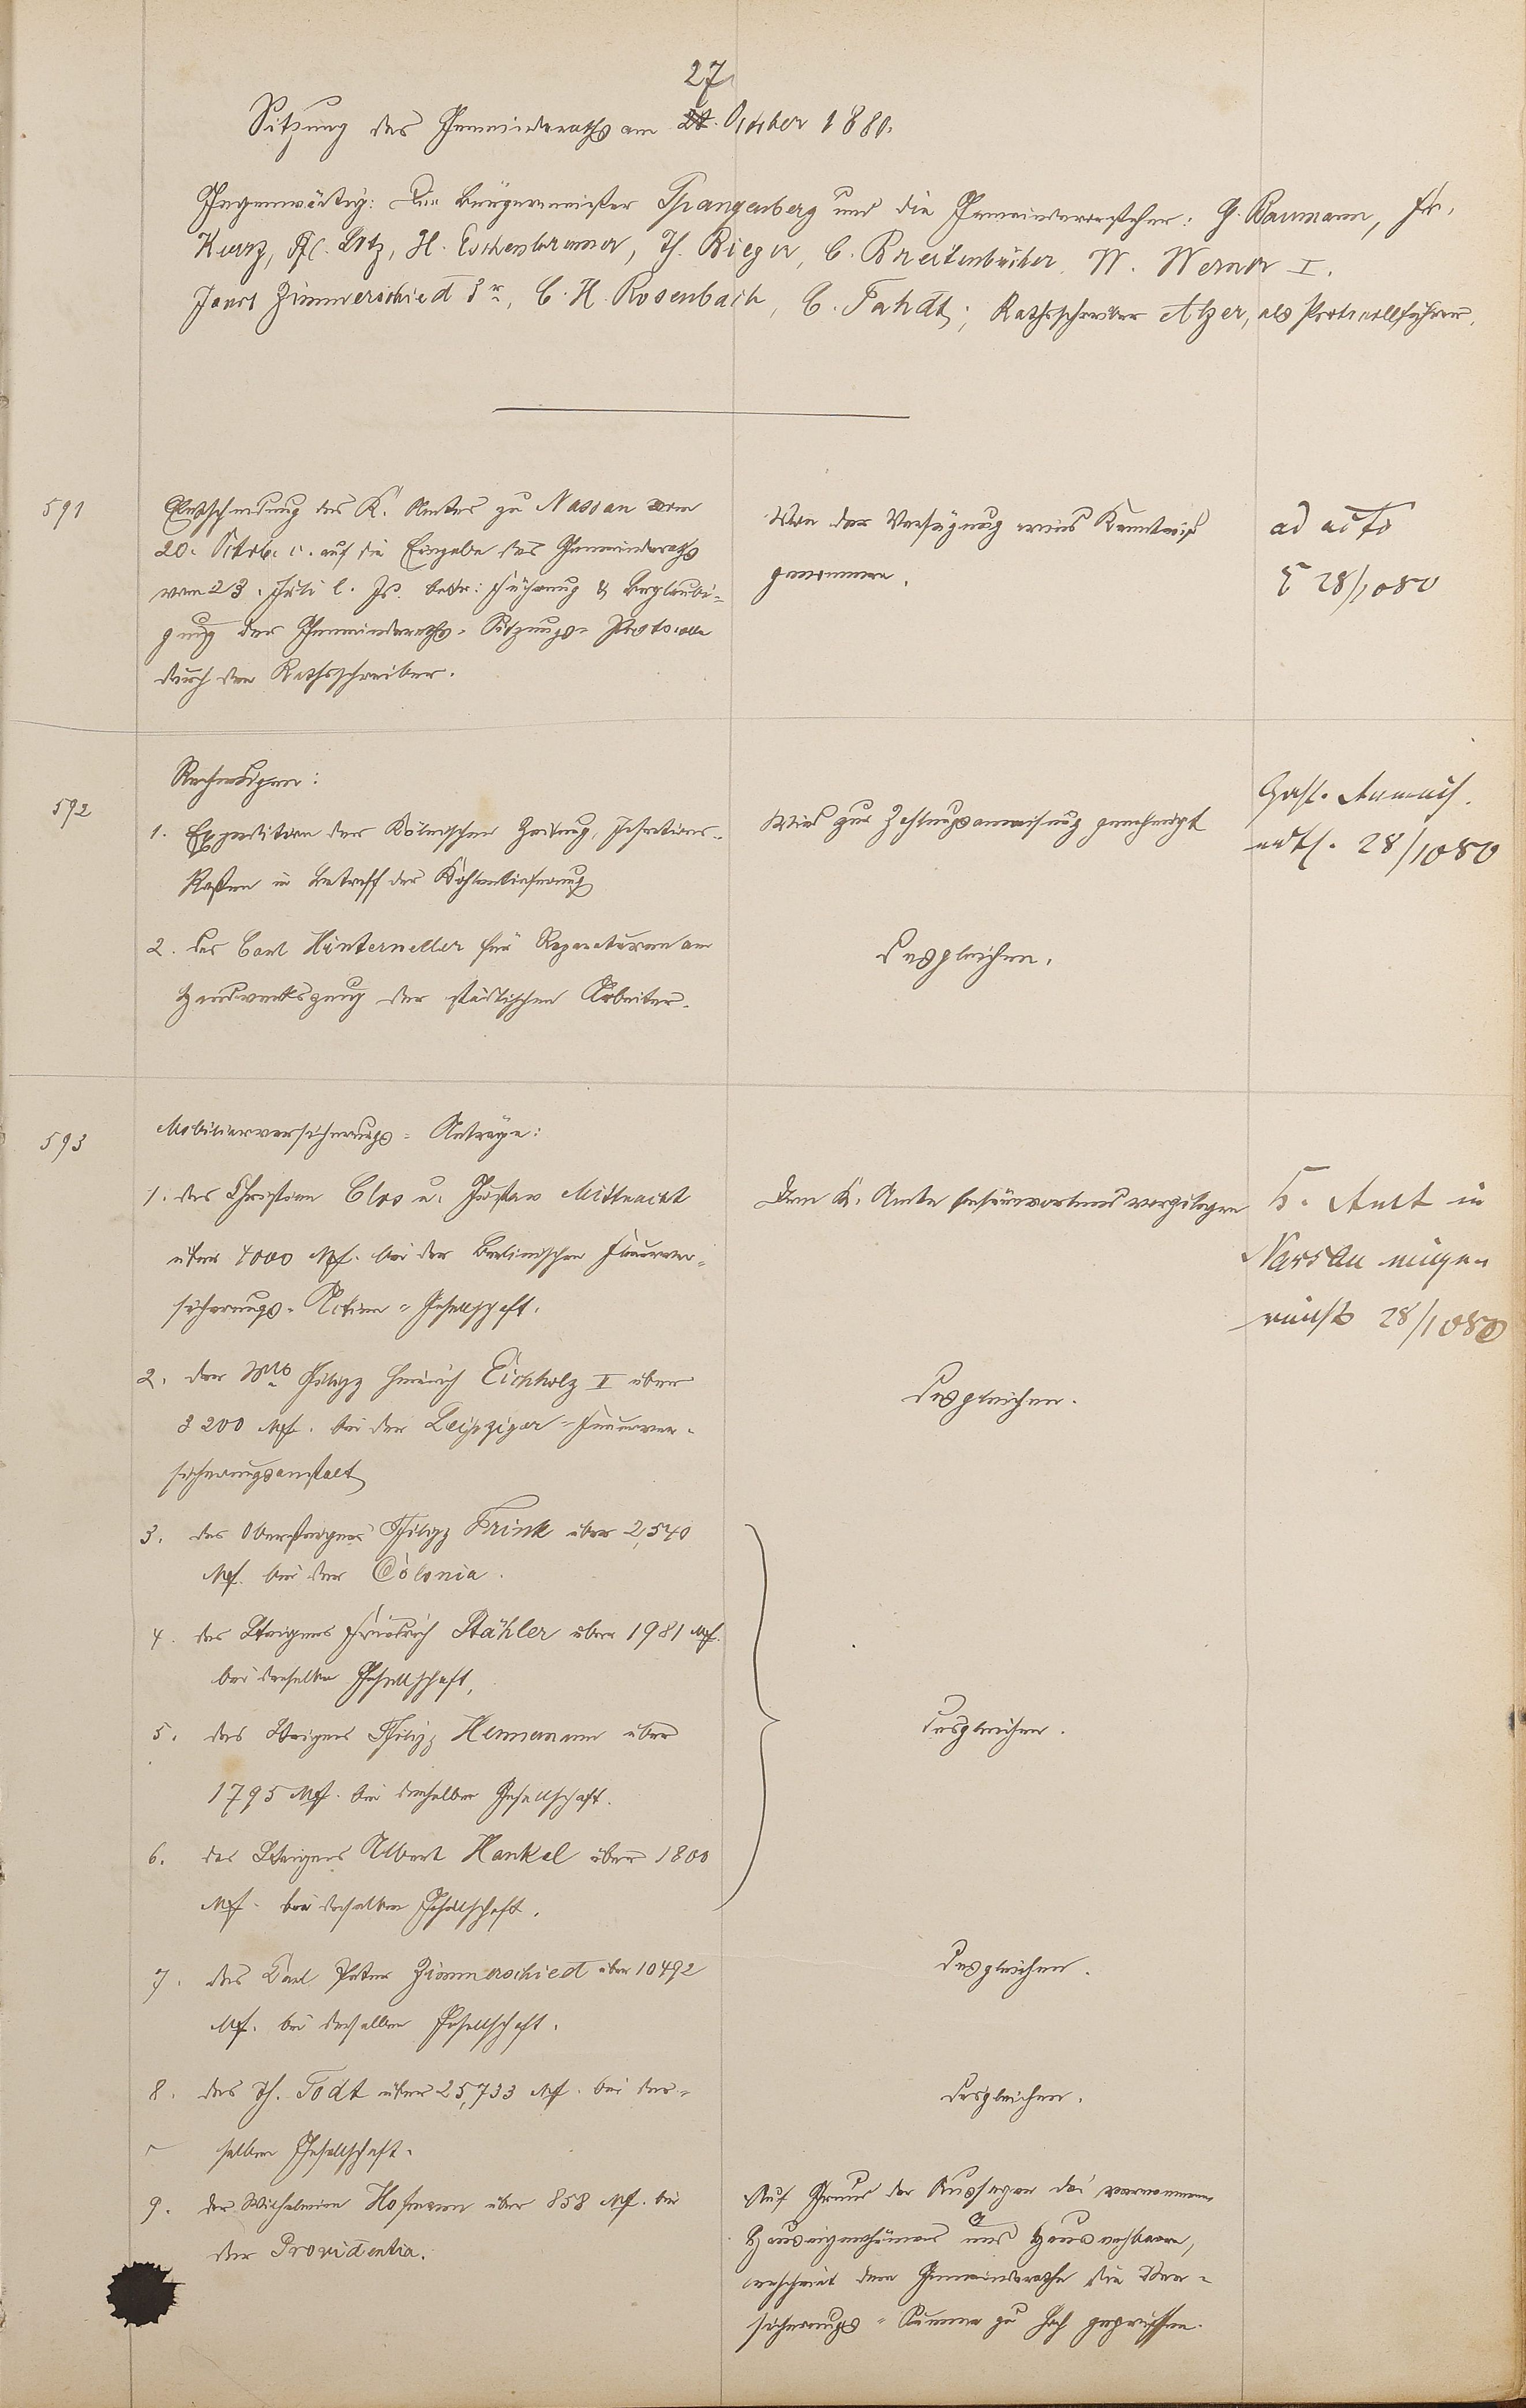 27
Sitzung des Gemeinderaths am 28. October 1880.
Gegenwärtig: Der Bürgermeister Spangenberg und die Gemeindevorsteher: G. Baumann, Fr.
Kurz, Fr. Lotz, H. Eschenbrenner, Th. Rieger, C. Breitenbücher, W. Werner I.,
Zimmerschied 3r, C. H. Rosenbach, C. Fahdt; Rathsschreiber Alzer, als Protocollführer.
591
Entscheidung des K. Amtes zu Nassau vom
20. Octob. c. auf die Eingabe des Gemeinderaths
vom 23. Juli l. Js. betr: Führung & Beglaubi-
gung der Gemeinderaths-Sitzungs-Protocolle
durch den Rathsschreiber.
Von der Verfügung wird Kenntniß
genommen.
ad acta
28/1080
592
Rechnungen:
1. Expedition der Kölnischen Zeitung, Insertions-
Kosten in Betreff der Kohlenlieferung
Wird zur Zahlungsanweisung genehmigt
28/1080
2. des Carl Hinterweller für Reparaturen am
Handwerkszeug der städtischen Arbeiter.
Desgleichen.
593
Mobiliarversicherungs-Anträge:
1. des Christian Clos u. Gustav Mittnacht
über 4000 Mk. bei der Berlinischen Feuerver-
sicherungs-Actien-Gesellschaft.
Dem K. Amte befürwortend vorzulegen
K. Amt in
Nassau einge-
reicht 28/1080
2. der Wwe Philipp Heinrich Eichholz II über
3200 Mk. bei der Leipziger-Feuerver-
sicherungsanstalt
Desgleichen.
3. des Obersteigers Philipp Frink über 2,540
Mk. bei der Colonia.
4. des Steigers Friedrich Stähler über 1981 Mk.
bei derselben Gesellschaft.
5. des Steigers Philipp Hennemann über
1795 Mk. bei derselben Gesellschaft.
Desgleichen.
6. des Steigers Albert Hankel über 1800
Mk. bei derselben Gesellschaft.
7. des Carl Peter Zimmerschied über 10492
Mk. bei derselben Gesellschaft.
Desgleichen.
8. des Th. Todt über 25,733 Mk. bei der-
selben Gesellschaft.
Desgleichen.
9. der Wilhelmine Hofmann über 858 Mk. bei
der Providentia.
Auf Grund der Aussagen des vernommenen
Hauseigenthümers und Hausnachbaren,
erscheint dem Gemeinderathe die Ver-
sicherungs-Summe zu hoch gegriffen.